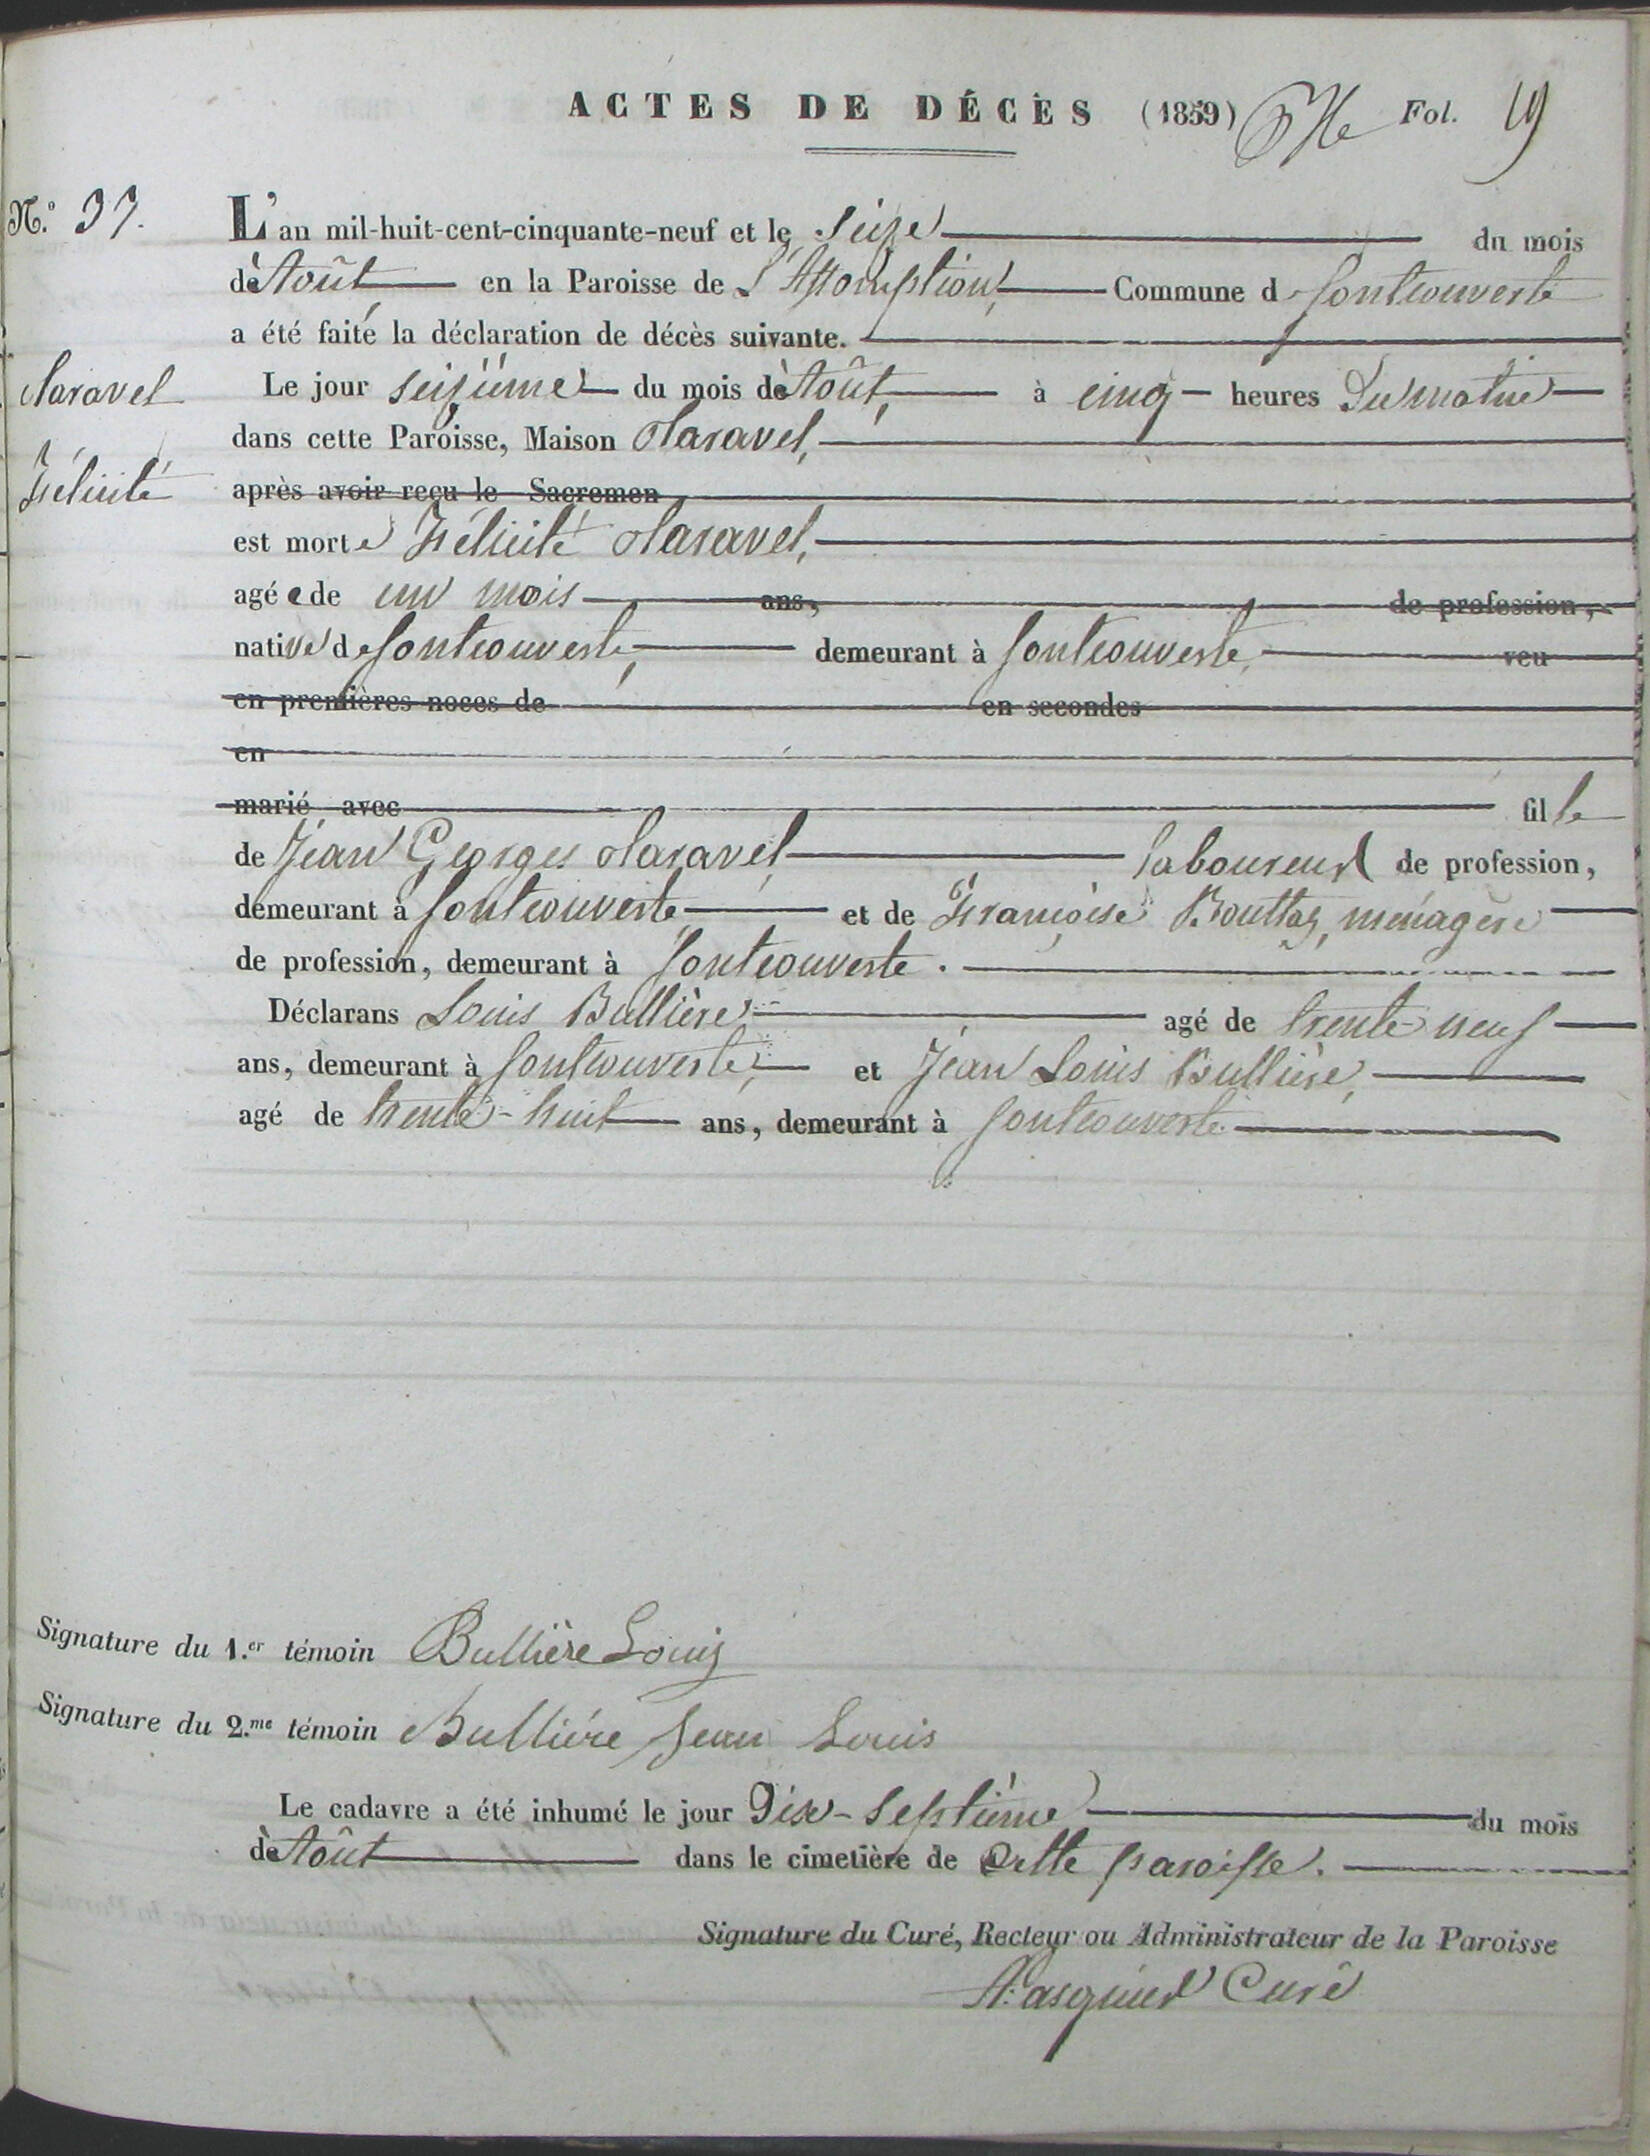 ACTES DE DÉCÈS (1859) Fol. 19
N.° 37. L'an mil-huit-cent-cinquante-neuf et le seize du mois
d'Août, en la Paroisse de L'Assomption, Commune de Fontcouverte
a été faite la déclaration de décès suivante.
Claravel Le jour seizième du mois d'Août, à cinq heures du matin
dans cette Paroisse, Maison Claravel,
Félicité après avoir reçu le Sacremen
est morte Félicité Claravel,
agée de un mois ans, de profession,
native de Fontcouverte, demeurant à Fontcouverte, veu
en premières noces de en secondes
en
marié avec fille
de Jean Georges Claravel, laboureur de profession,
demeurant à Fontcouverte, et de Françoise Bouttaz, ménagère
de profession, demeurant à Fontcouverte.
Déclarans Louis Bullière agé de trente-neuf
ans, demeurant à Fontcouverte, et Jean Louis Bullière,
agé de trente-huit ans, demeurant à Fontcouverte.
Signature du 1.er témoin Bullière Louis
Signature du 2.me témoin Bullière Jean Louis
Le cadavre a été inhumé le jour dix-septième du mois
d'Août dans le cimetière de cette paroisse.
Signature du Curé, Recteur ou Administrateur de la Paroisse
Pasquier Curé